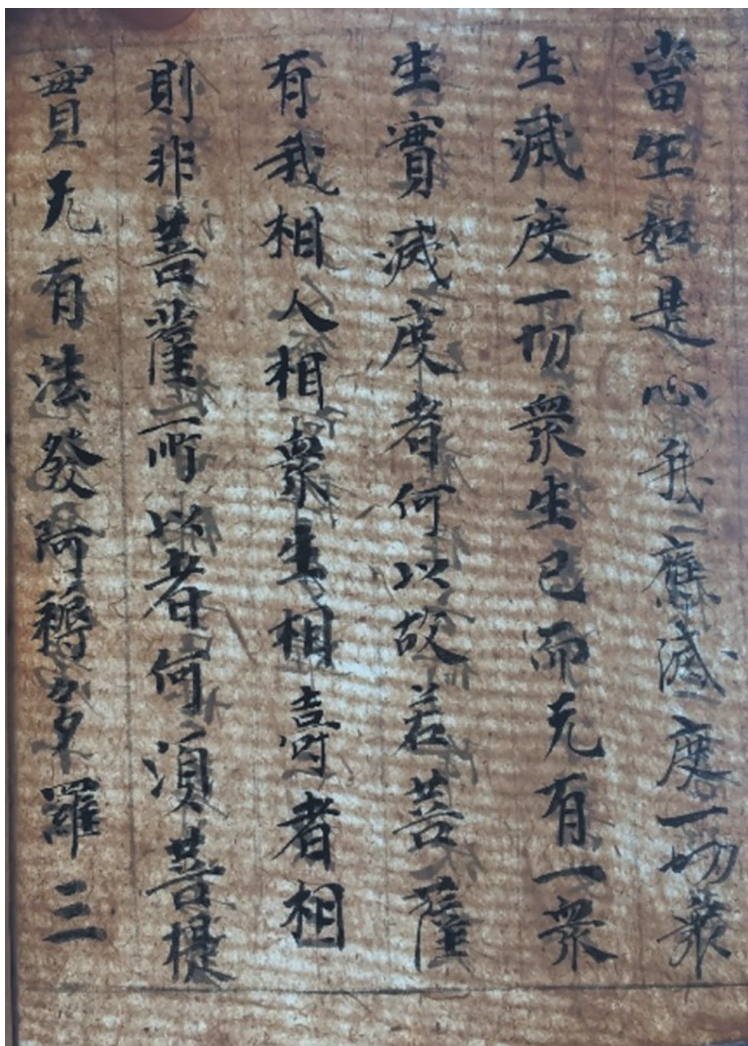 當生如是心我應滅度一切衆
生滅度一切衆生已而无有一衆
生實滅度者何以故若菩薩
有我相人相衆生相壽者相
則非菩薩所以者何須菩提
實无有法發阿耨多羅三